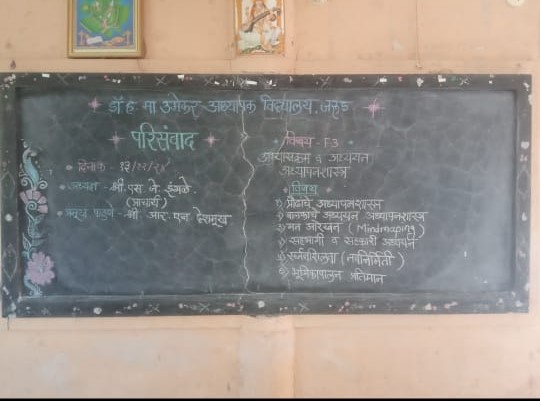 डॉ. ह. मा. उमेकर अध्यापक विद्यालय, जरुड
परिसंवाद
दिनांक -
अध्यक्ष - श्री. एस. जे. इंगळे.
(प्राचार्य)
प्रमुख पाहुणे - श्री आर. एन देशमुख
विषय - F3
अभ्यासक्रम व अध्ययन
अध्यापनशास्त्र
विषय
१) प्रौढांचे अध्यापनशास्त्र
२) बालकांचे अध्ययन अध्यापनशास्त्र
३) मन आरेखन ( Mindmaping )
४) सहभागी व सहकारी अध्ययन
५) सर्जनशीलता (नवनिर्मिती )
६) भूमिकापालन प्रतिमान